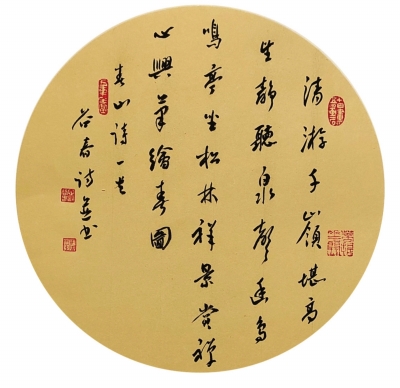 清游千嶺堪高
生静聽泉聲幽鳥
鳴亭坐松林祥景賞禅
心興筆繪春圖
春山詩一首
谷春詩並書